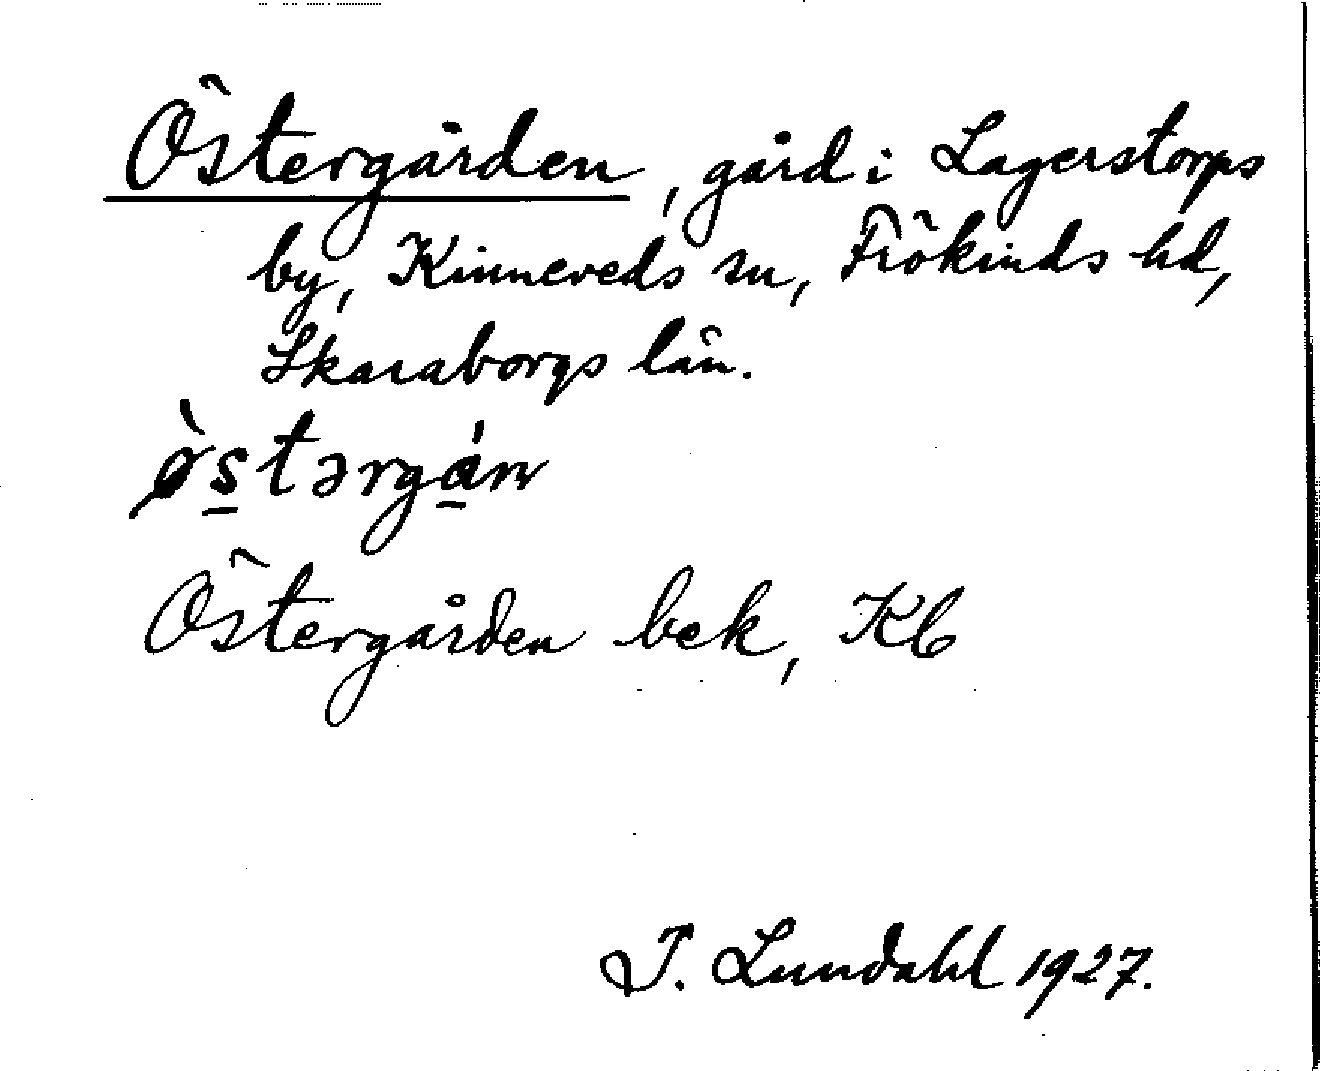 Östergården, gård i Lagerstorps
by, Kinneveds sn, Frökinds hd,
Skaraborgs län.
ø̀s̲tərgá̲n
Östergården bek, Kb
I. Lundahl 1927.